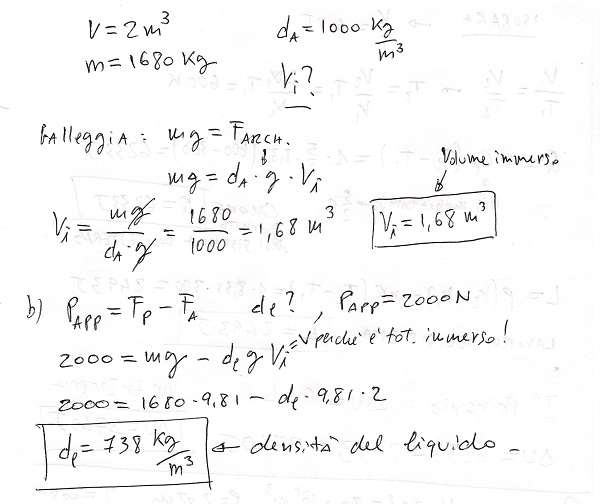 V = 2 m³ d_A = 1000 kg/m³
m = 1680 Kg
V_i?
GAlleggiA: mg = F_ARCH.
mg = d_A · g · V_i
Volume immerso
V_i = mg/d_A·g = 1680/1000 = 1,68 m³ V_i = 1,68 m³
b) P_APP = F_P − F_A d_l? , P_APP = 2000 N
2000 = mg − d_l g V_i = V perché è tot. immerso!
2000 = 1680 · 9,81 − d_l · 9,81 · 2
d_l = 738 kg/m³ ← densità del liquido −